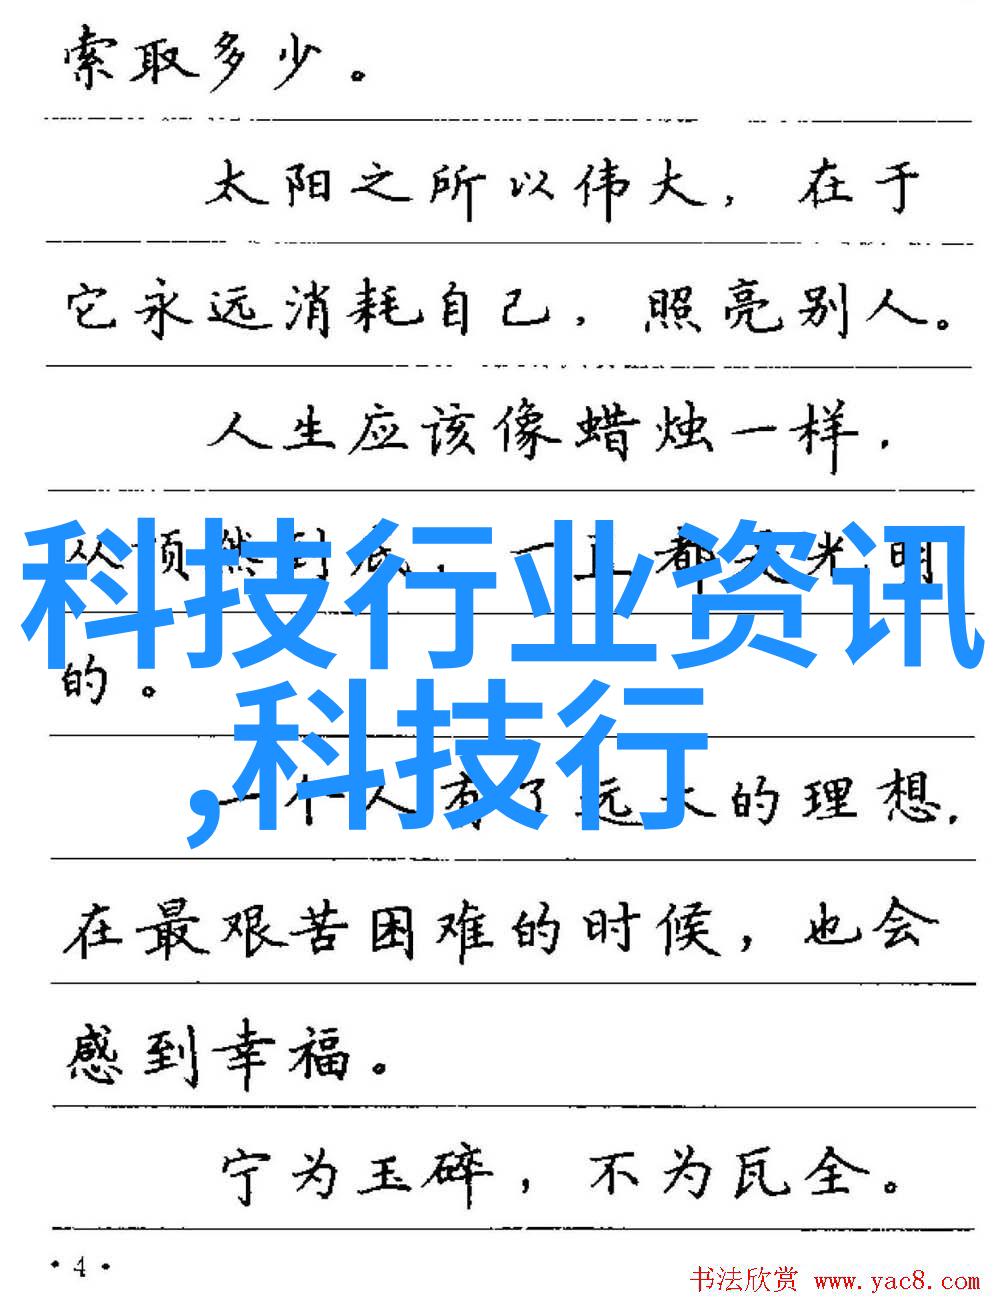 索取多少。
太阳之所以伟大，在于
它永远消耗自己，照亮别人。
人生应该像蜡烛一样.
从顶燃到底，一直都是光明
科技行业资讯
的。
,科技行
一个人有了远大的理想.
在最艰苦困难的时候，也会
感到幸福。
宁为玉碎，不为瓦全。
·4·
书法欣赏 www.yac8.com